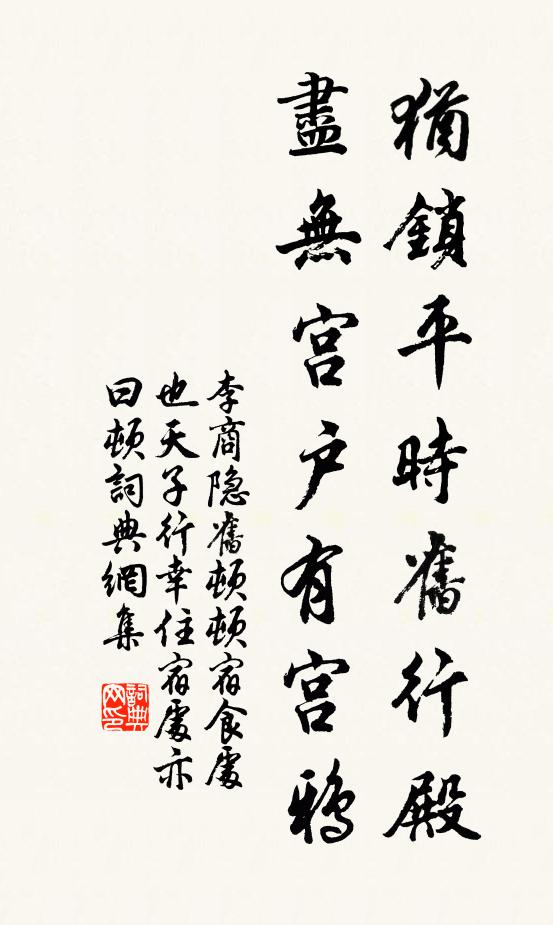 猶鎖平時舊行殿
盡無宫户有宫鴉
李商隐舊頓頓宿食處
也天子行幸住宿處亦
曰頓詞典網集
詞典
网印